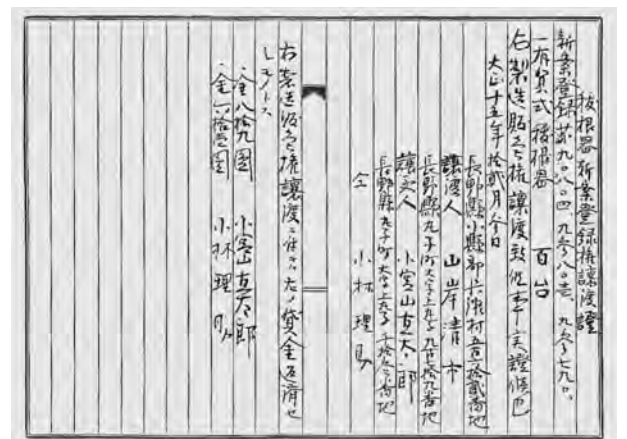 抜根器新案登録権譲渡證
新案登録第九〇八〇四、九参八〇壱、九参七九〇、
一有賀式抜根器 百台
右製造販売権譲渡致候事実證候也
大正十五年拾弐月参日
長野縣小縣郡長瀬村五百拾弐番地
譲渡人 山岸清市
長野縣丸子町大字上丸子九百七拾九番地
譲受人 小宮山直太郎
長野縣丸子町大字上丸子千拾参番地
仝 小林理助
右製造販売権譲渡ニ付テハ左ノ貸金返済セ
シモノトス
・金八拾九圓 小宮山直太郎
・金六拾壱圓 小林理助